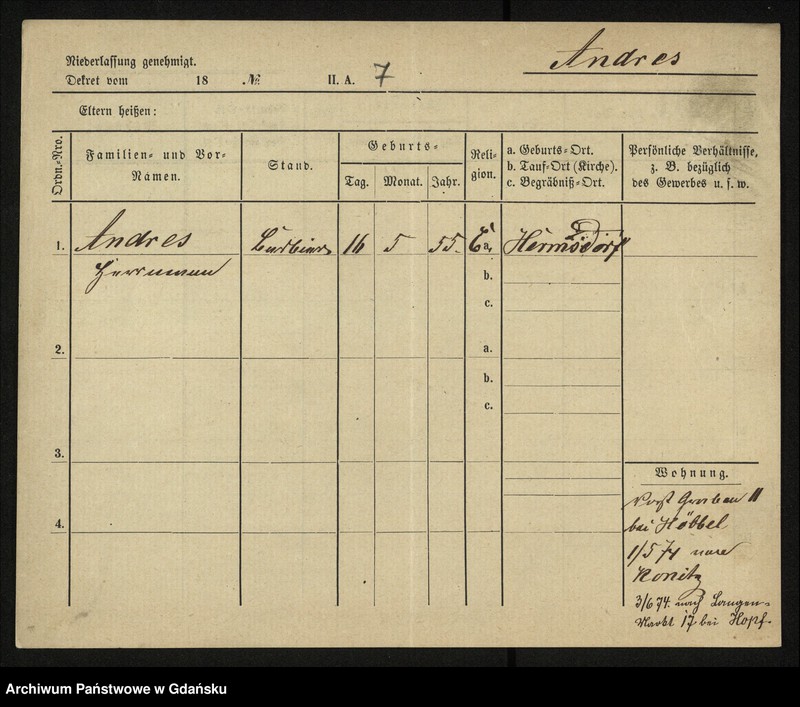 Andres
Niederlassung genehmigt.
Dekret vom 18 № II. A. 7
Eltern heißen:
Ordn.-Nro.
Familien- und Vor-
Namen.
Stand.
Geburts-
Tag. Monat. Jahr.
Reli-
gion.
a. Geburts-Ort.
b. Tauf-Ort (Kirche).
c. Begräbniß-Ort.
Persönliche Verhältnisse,
z. B. bezüglich
des Gewerbes u. s. w.
1. Andres Barbier 16 5 55. E a. Hermsdorf
Herrmann
b.
c.
2. a.
b.
c.
3.
4.
Wohnung.
Vorst Graben 11
bei Höbbel
1/5 74 nach
Konitz
3/6 74. nach Langen-
Markt 17 bei Hopf.
Archiwum Państwowe w Gdańsku